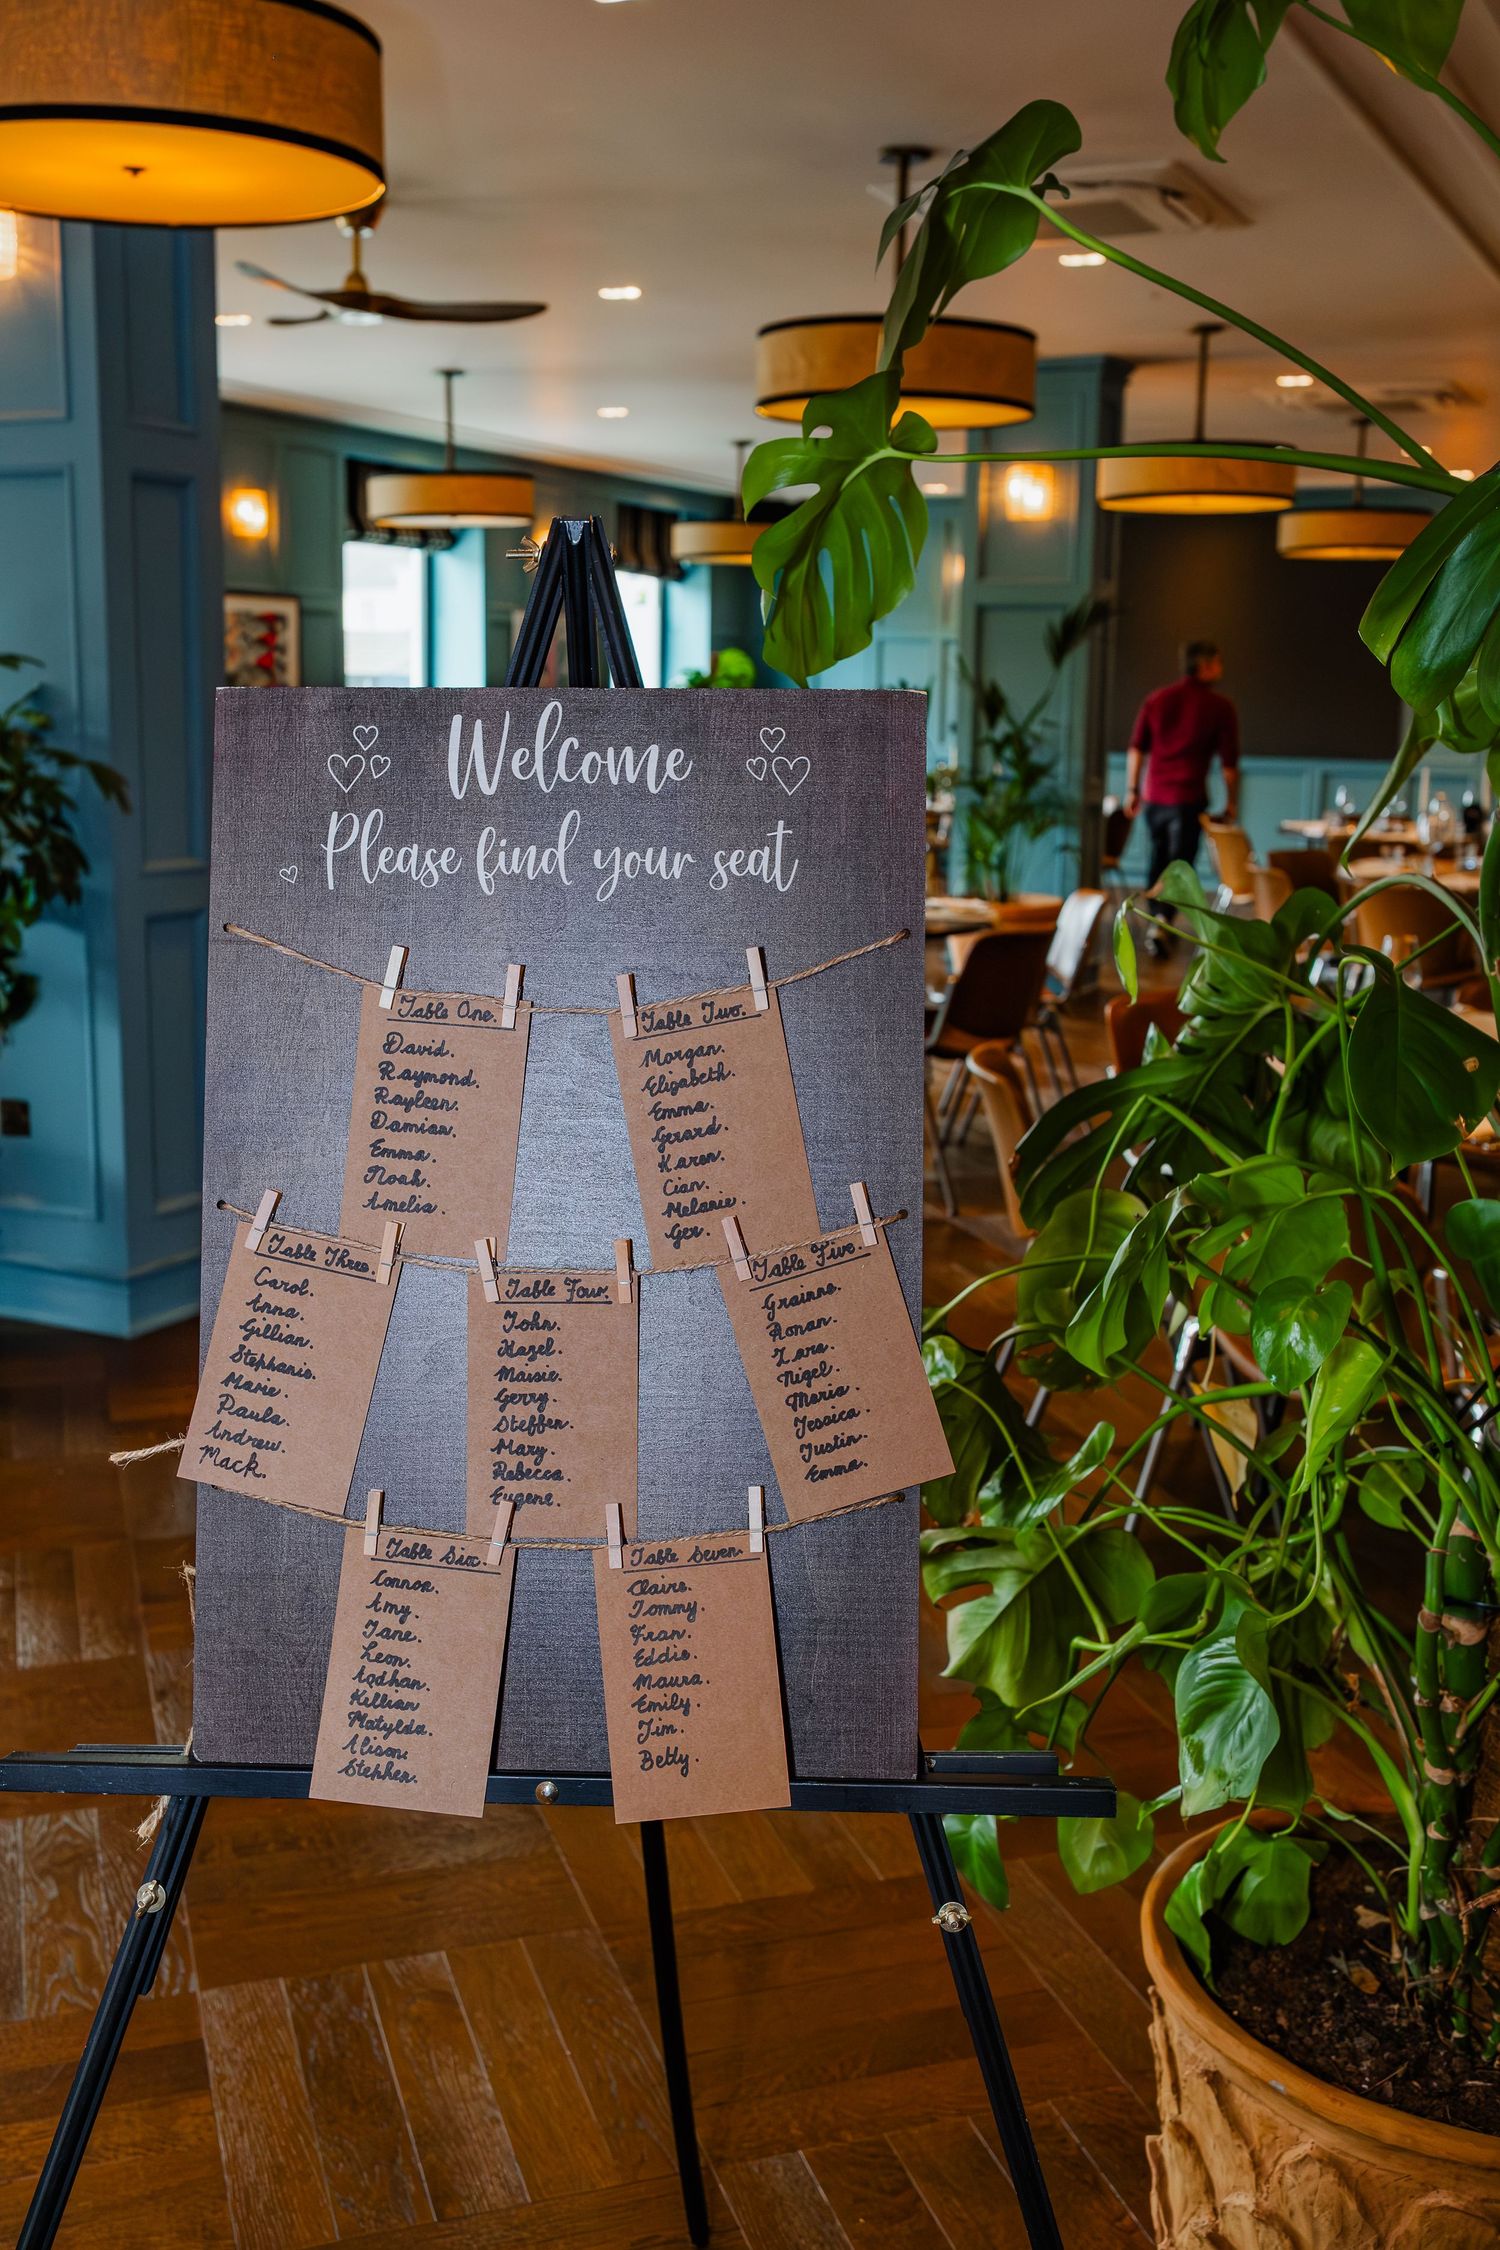 Welcome
Please find your seat
Table One.
David.
Raymond.
Rayleen.
Damian.
Emma.
Noah.
Amelia.
Table Two.
Morgan.
Elizabeth.
Emma.
Gerard.
Karen.
Cian.
Melanie.
Ger.
Table Three.
Carol.
Anna.
Gillian.
Stephanie.
Marie.
Paula.
Andrew.
Mack.
Table Four.
John.
Hazel.
Maisie.
Gerry.
Steffen.
Mary.
Rebecca.
Eugene.
Table Five.
Grainne.
Ronan.
Zara.
Nigel.
Maria.
Jessica.
Justin.
Emma.
Table Six.
Connor.
Amy.
Jane.
Leon.
Aodhan.
Killian
Matylda.
Alison.
Stephen.
Table Seven.
Claire.
Tommy.
Fran.
Eddie.
Maura.
Emily.
Jim.
Betty.